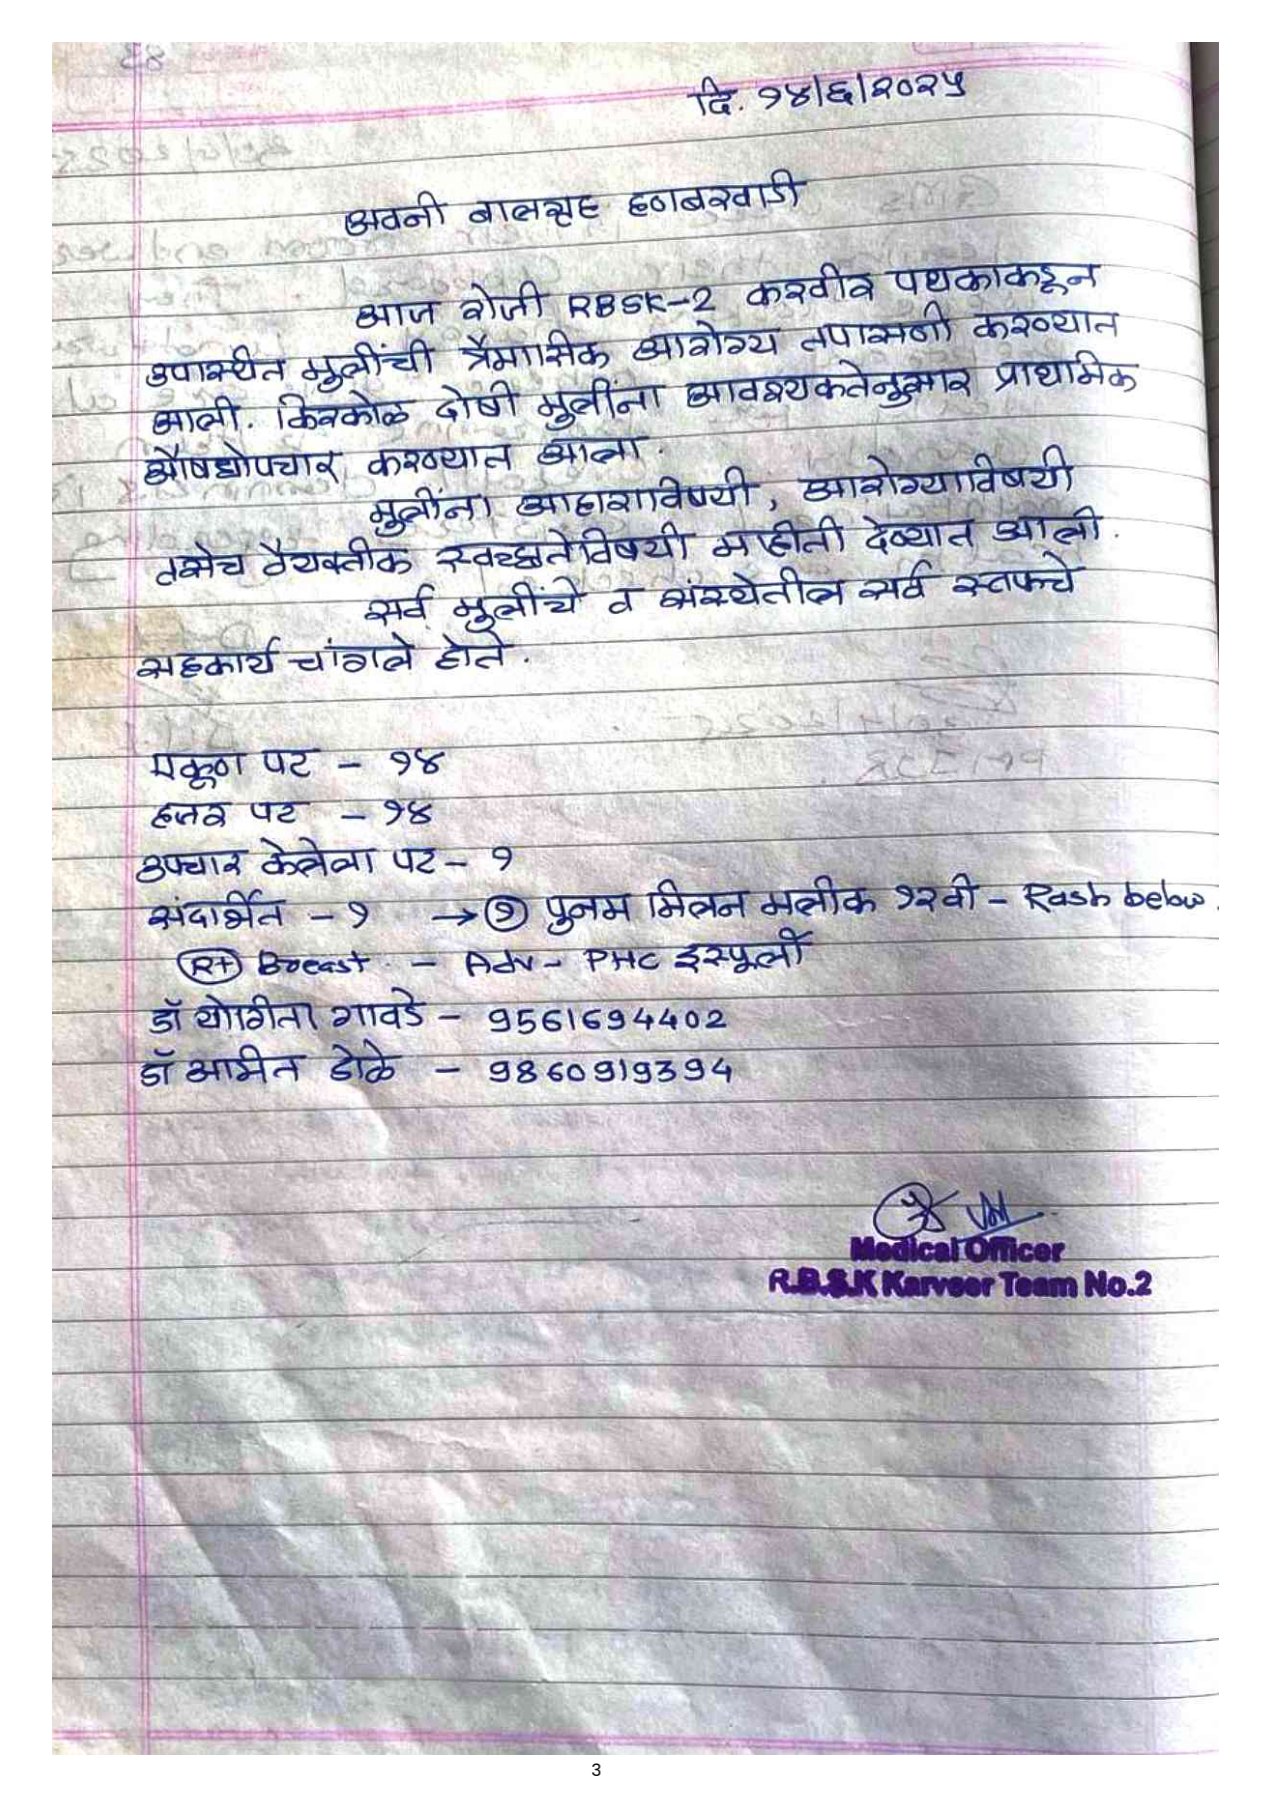 दि. १४/६/२०२५
अवनी बालगृह हणबरवाडी
आज रोजी RBSK-2 करवीर पथकाकडून
उपास्थीत मुलींची त्रैमासिक आरोग्य तपासणी करण्यात
आली. किरकोळ दोषी मुलींना आवश्यकतेनुसार प्राथमिक
औषधोपचार करण्यात आला.
मुलींना आहाराविषयी, आरोग्याविषयी
तसेच वैयक्तीक स्वच्छतेविषयी माहीती देण्यात आली.
सर्व मुलींचे व संस्थेतील सर्व स्टाफचे
सहकार्य चांगले होते.
एकूण पट - १४
हजर पट - १४
उपचार केलेला पट - १
संदार्भित - १ → ① पुनम मिलन मलीक १२वी - Rash below
Rt Breast - Adv - PHC इस्पूर्ली
डॉ योगिता गावडे - 9561694402
डॉ आमित डोळे - 9860919394
Medical Officer
R.B.S.K Karveer Team No.2
3